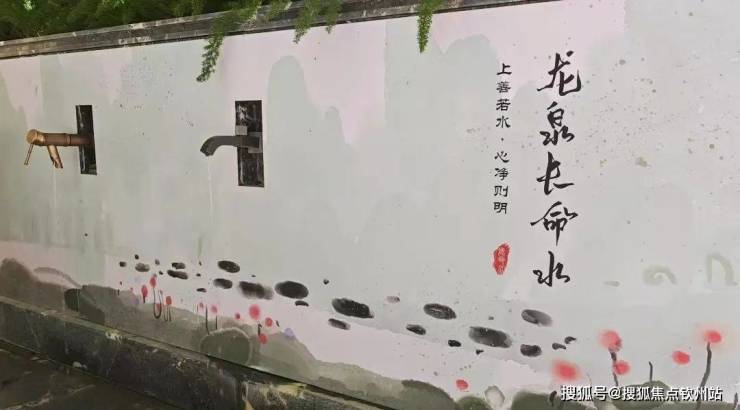 龙泉长命水
上善若水·心净则明
搜狐号@搜狐焦点钦州站